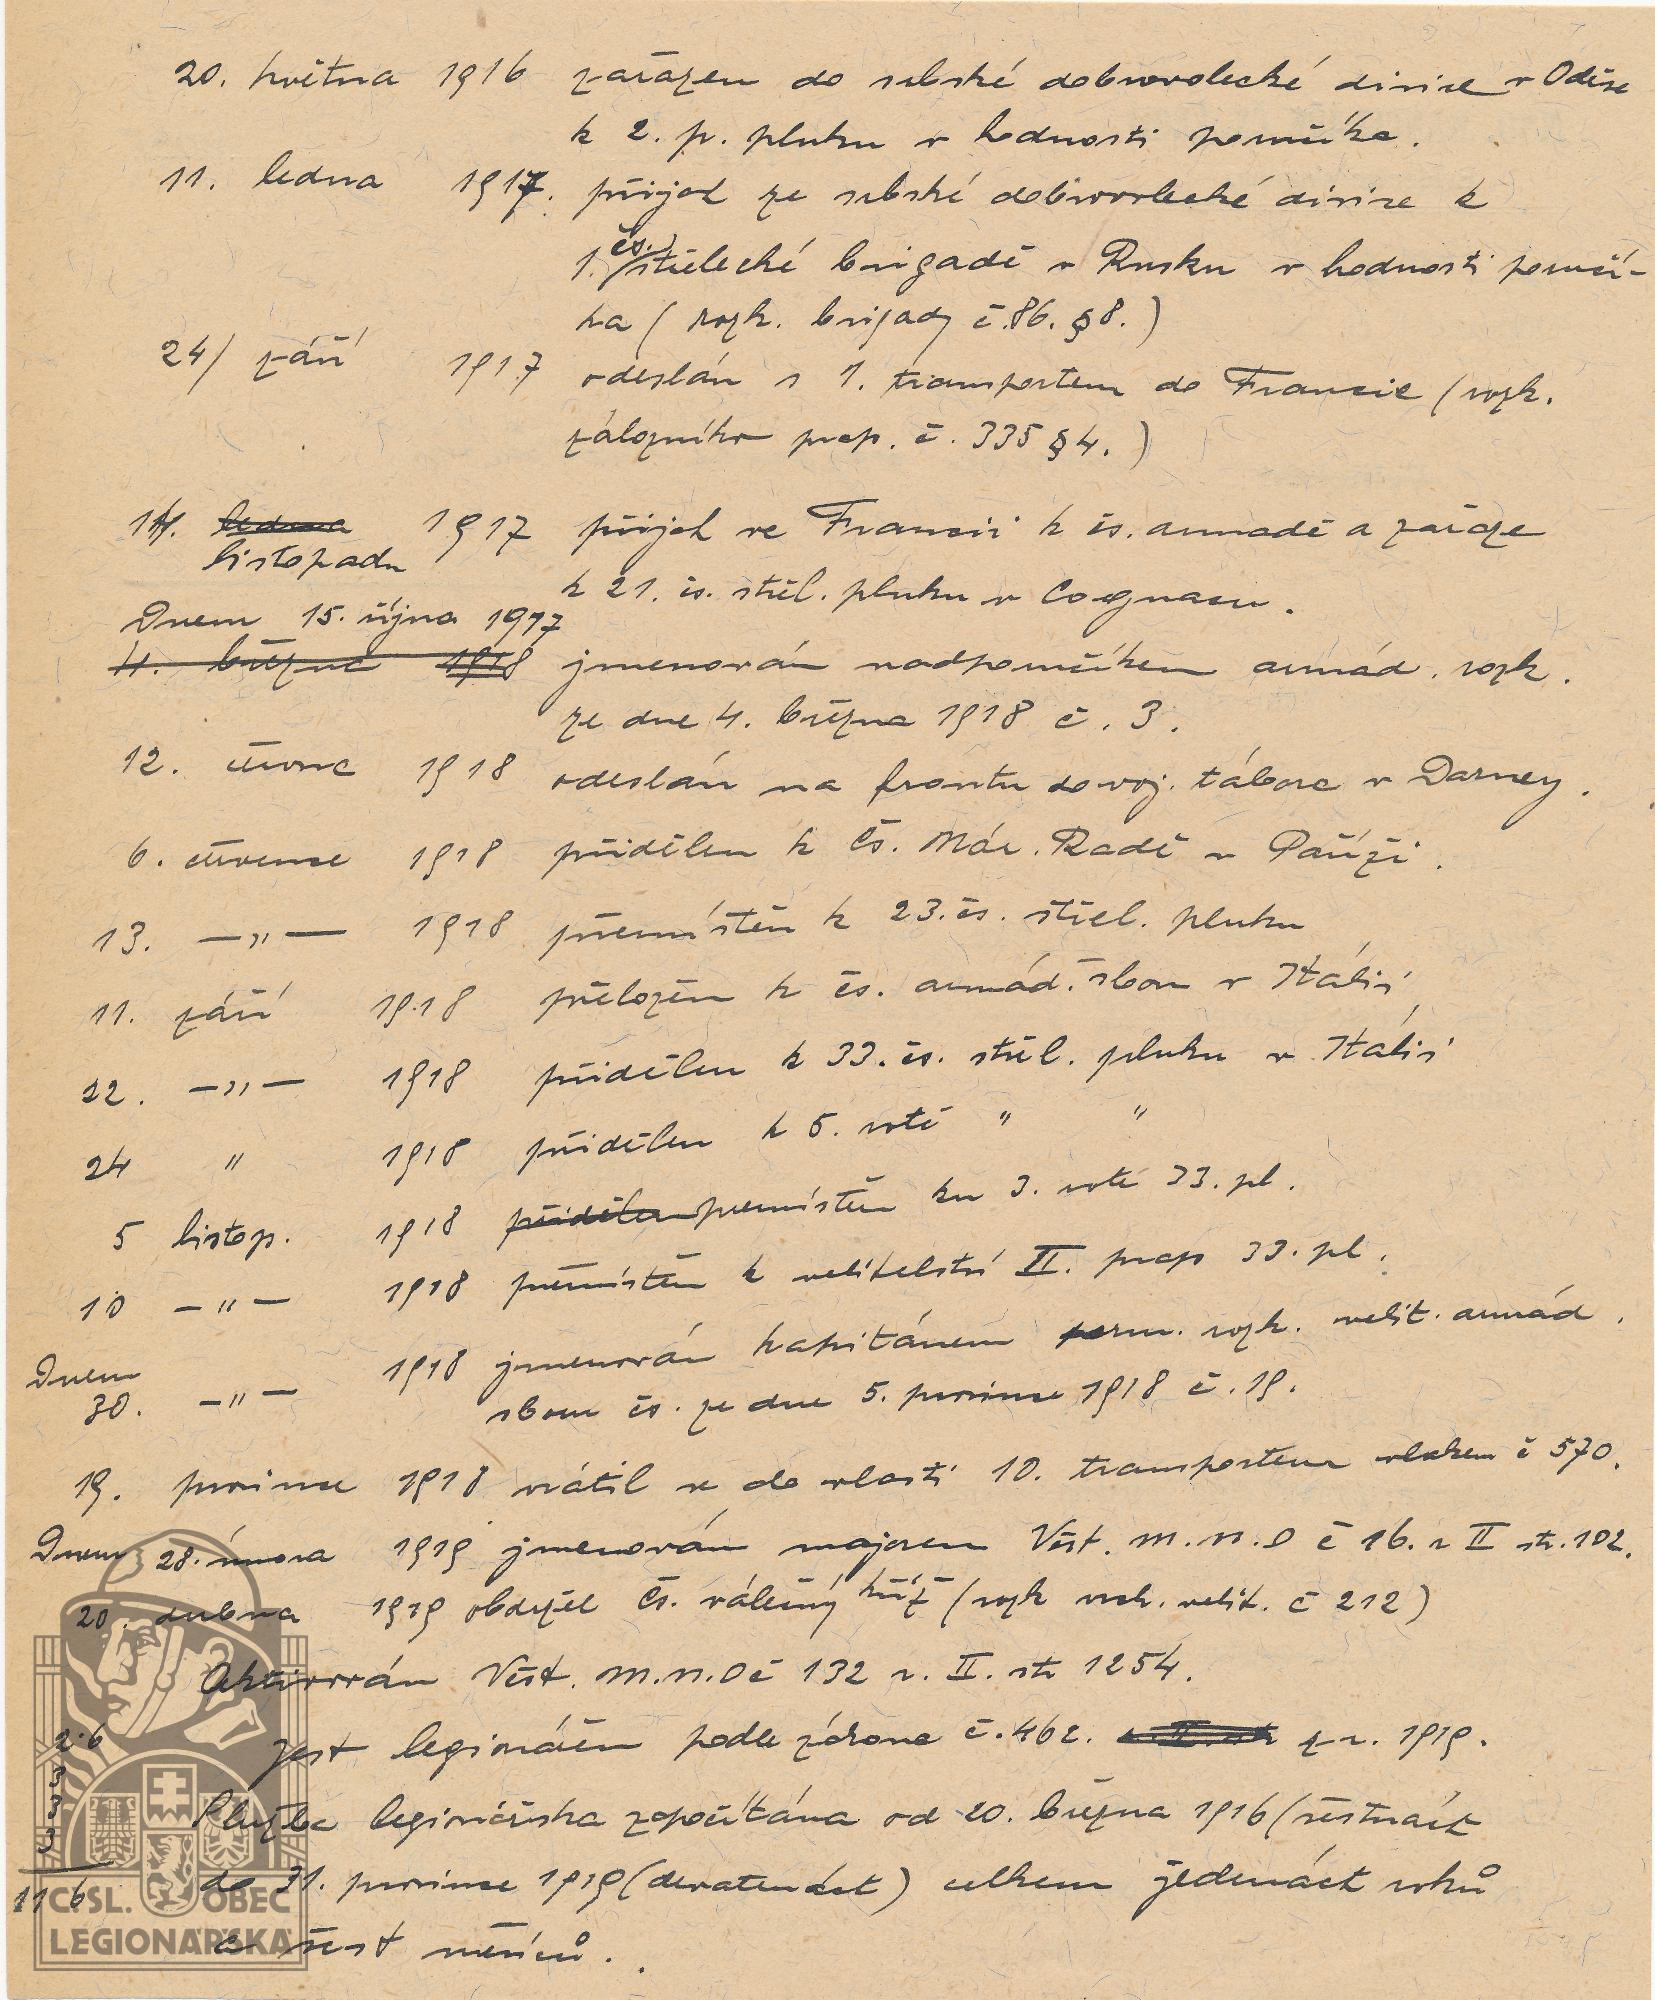 20. května 1916 zařazen do srbské dobrovolecké divize v Oděse
k 2. p. pluku v hodnosti poručíka.
11. ledna 1917. přijat ze srbské dobrovolecké divize k
1. čs. střelecké brigadě v Rusku v hodnosti poručí-
ka (rozk. brigady č. 86. § 8.)
24/ září 1917 odeslán s 1. transportem do Francie (rozk.
záložního prap. č. 335 § 4.)
14. ledna 1917 přijat ve Francii k čs. armadě a zařaze
listopadu
k 21. čs. střel. pluku v Cognacu.
Dnem 15. října 1917
4. března 1918 jmenován nadporučíkem armád. rozk.
ze dne 4. března 1918 č. 3.
12. června 1918 odeslán na frontu do voj. tábora v Darney.
6. července 1918 přidělen k Čs. Nár. Radě v Paříži.
13. —„— 1918 přemístěn k 23. čs. střel. pluku
11. září 1918 přeložen k čs. armád. sboru v Itálii
22. —„— 1918 přidělen k 33. čs. střel. pluku v Itálii
24 " 1918 přidělen k 5. rotě " "
5 listop. 1918 přidělen přemístěn ku 3. rotě 33. pl.
10 —"— 1918 přemístěn k velitelství II. prap 33. pl.
Dnem
30. —"— 1918 jmenován kapitánem rozk. velit. armád.
sboru čs. ze dne 5. prosince 1918 č. 19.
19. prosince 1918 vrátil se do vlasti 10. transportem vlakem č 570.
Dnem 28. února 1919 jmenován majorem Věst. M.N.O č 16. r II str. 102.
20. dubna 1919 obdržel Čs. válečný kříž (rozk vrch. velit. č 212)
Aktivován Věst. M.N.O č 132 r. II. str 1254.
Jest legionářem podle zákona č. 462. z r. 1919.
Služba legionářská započítána od 20. března 1916 (šestnáct
do 31. prosince 1919 (devatenáct) celkem jedenáct roků
a šest měsíců.
2·6
3
3
3
11 6
ČSL. OBEC
LEGIONÁŘSKÁ